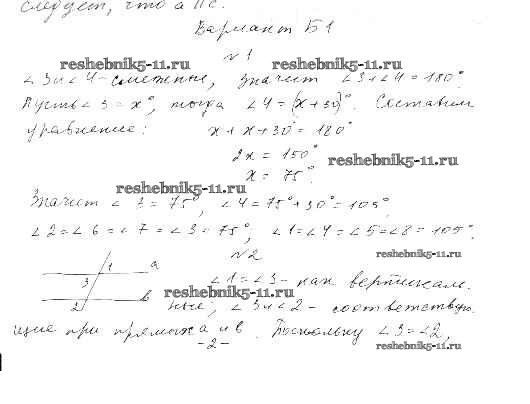 следует, что a II c.
Вариант Б1
№1
reshebnik5-11.ru reshebnik5-11.ru
∠3 и ∠4 - смежные, значит ∠3+∠4=180°.
Пусть ∠3=x°, тогда ∠4=(x+30)°. Составим
уравнение: x+x+30°=180°
2x=150° reshebnik5-11.ru
x=75°.
reshebnik5-11.ru
Значит ∠3=75°, ∠4=75°+30°=105°
∠2=∠6=∠7=∠3=75°; ∠1=∠4=∠5=∠8=105°.
№2 reshebnik5-11.ru
1 a
3 ∠1=∠3 - как вертикаль-
reshebnik5-11.ru
2 b ные, ∠3 и ∠2 - соответствую-
щие при прямых a и b. Поскольку ∠3=∠2,
-2-
reshebnik5-11.ru